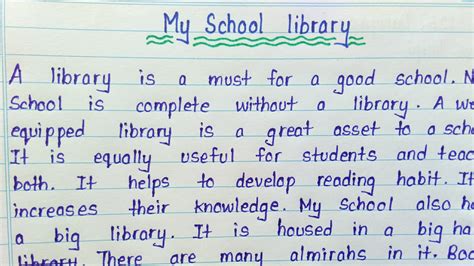 My School library
A library is a must for a good school. N
School is complete without a library. A we
equipped library is a great asset to a sch
It is equally useful for students and teac
both. It helps to develop reading habit. It
increases their knowledge. My School also h
a big library. It is housed in a big ha
library. There are many almirahs in it. Boo